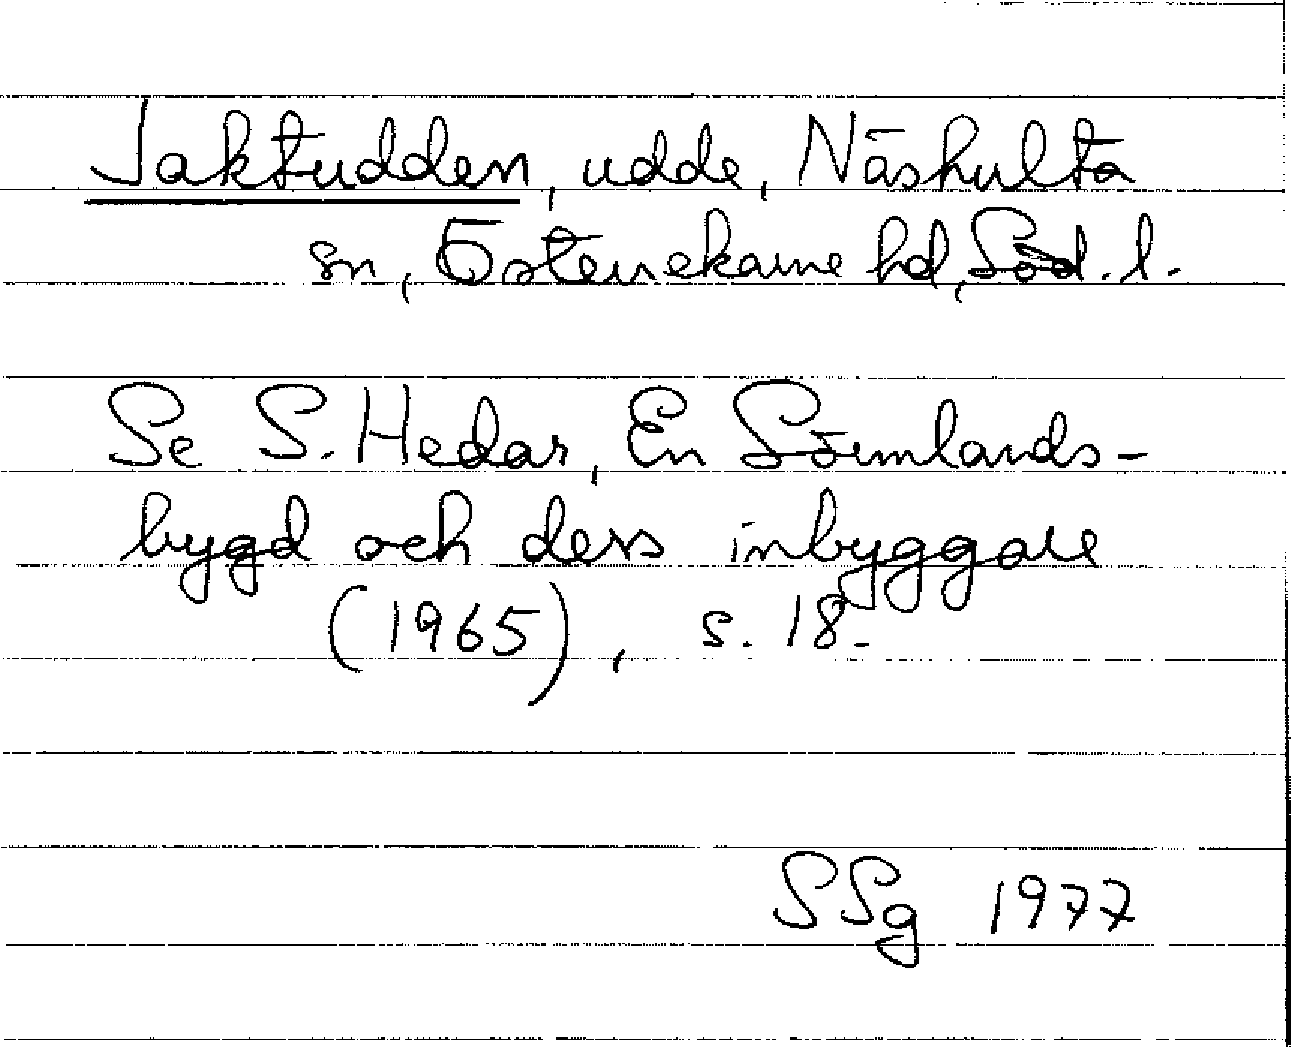 Jaktudden, udde, Näshulta
sn, Österrekarne hd, Söd. l.
Se S. Hedar, En Sörmlands-
bygd och dess inbyggare
(1965), s. 18.
SSg 1977